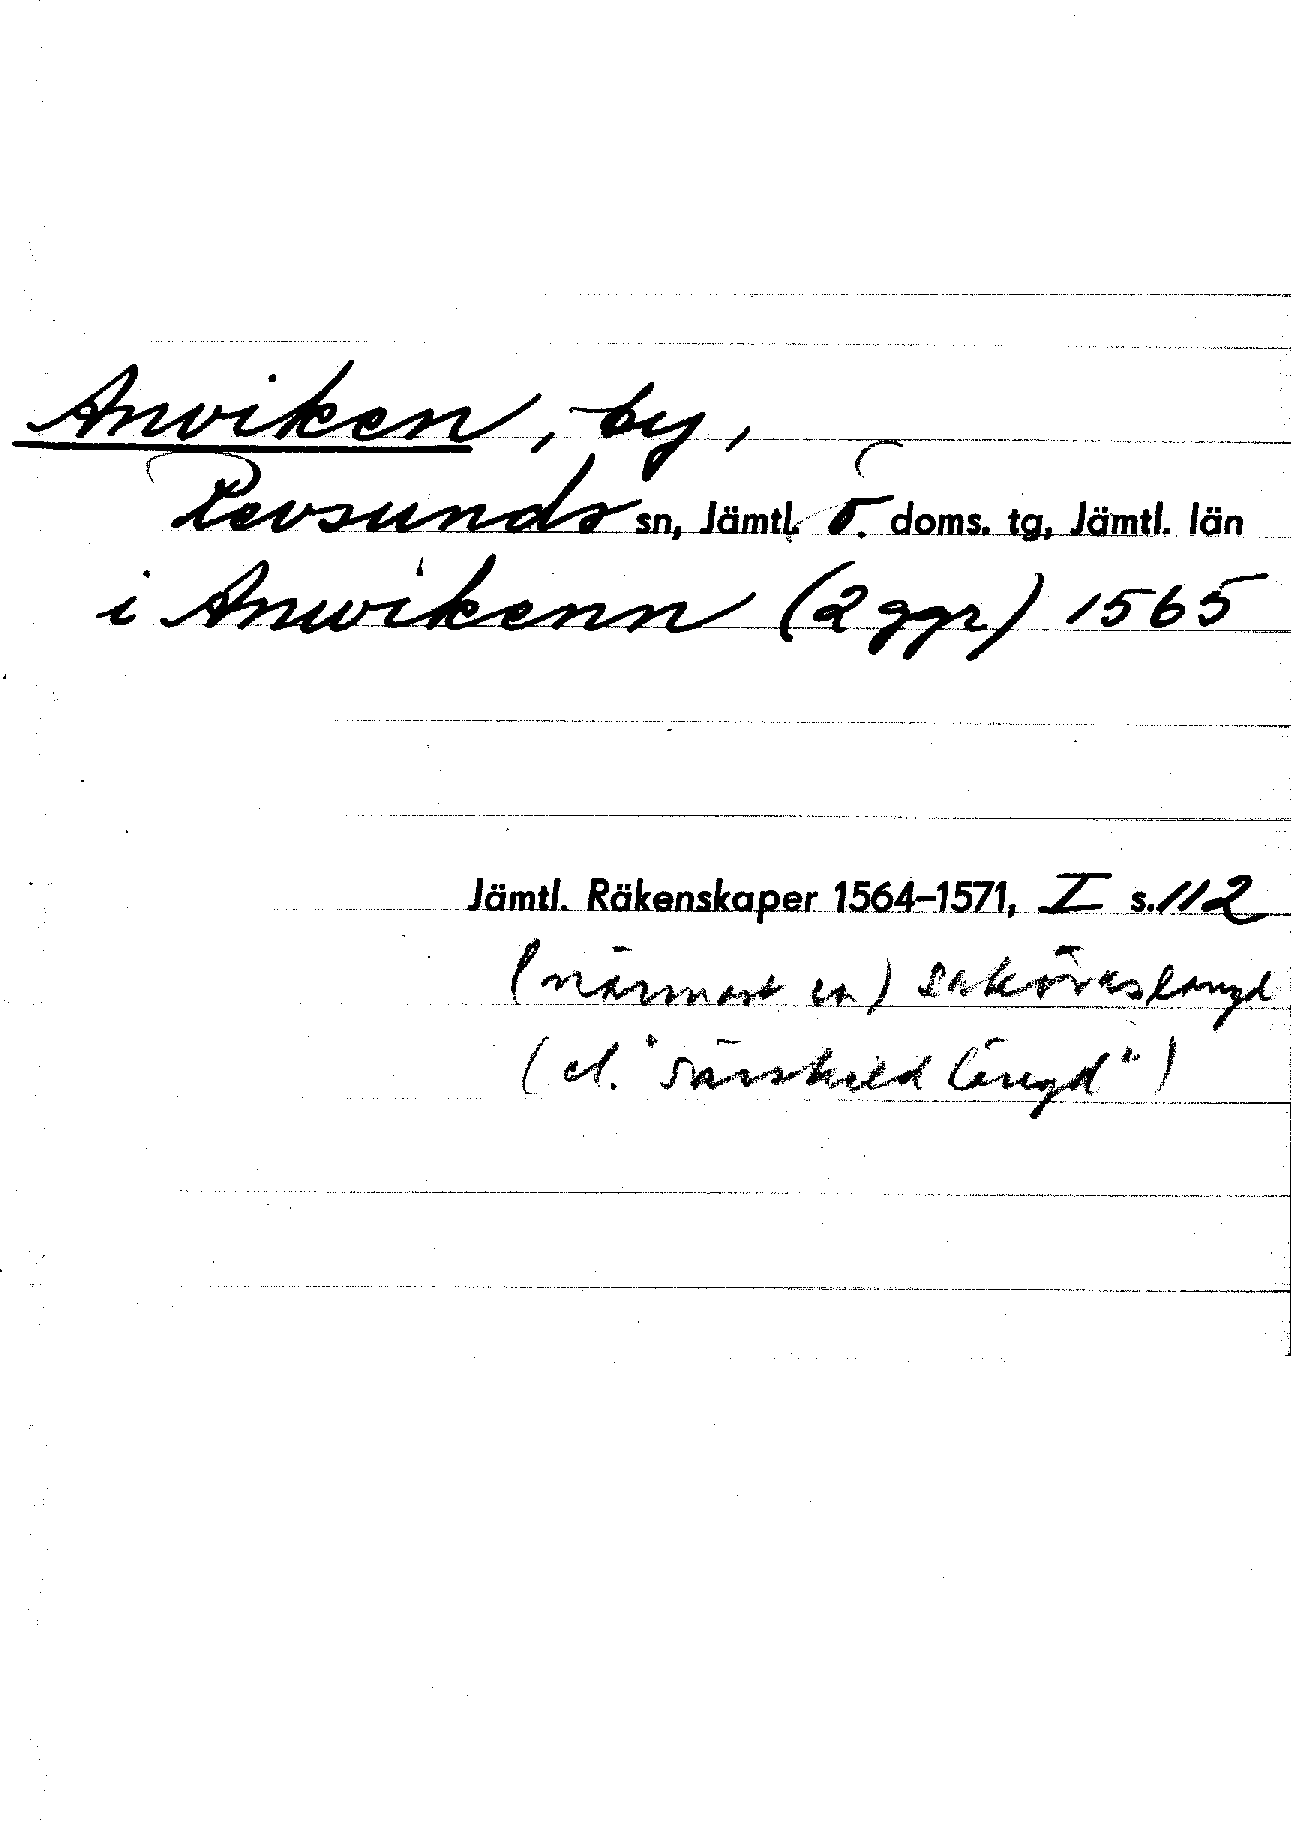 Anviken, by,
Revsunds sn, Jämtl. ö. doms. tg, Jämtl. län
i Anwikenn (2 ggr) 1565
Jämtl. Räkenskaper 1564–1571, I s. 112
(närmast en) saköreslängd
(el. "särskild längd")